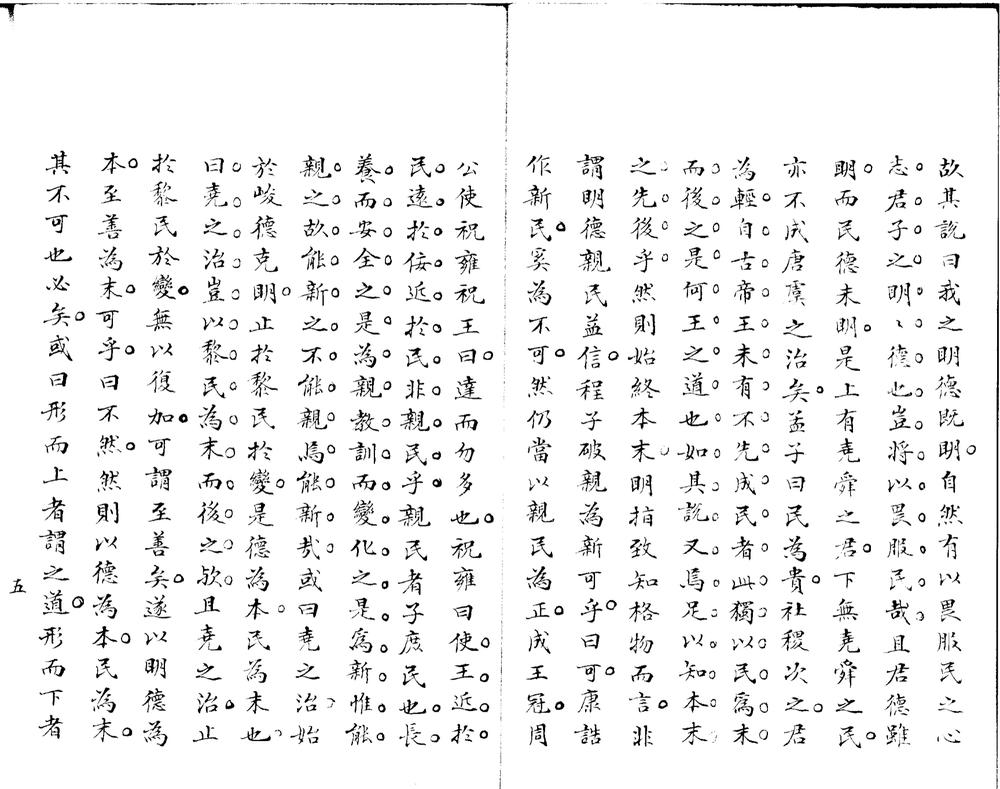 故其說曰我之明德既明。自然有以畏服民之心
志。君子之明。〻德也。豈將。以畏服民哉。且君德雖
明。而民德未明。是上有堯舜之君。下無堯舜之民。
亦不成唐虞之治矣。孟子曰民為貴。社稷次之。君
為輕。自古帝王。未有。不先。成民者。此獨。以民爲。末。
而後。之。是何。王之道也。如其說。又焉足以知。本末。
之。先後。乎。然則始終本末。明指致知格物而言。非
謂明德親民益信。程子破親為新可乎。曰可。康誥
作新民。奚為不可。然仍當以親民為正。成王冠。周
公使祝雍祝王曰。達而勿多也。祝雍曰使。王近。於。
民。遠。於。佞。近。於。民。非。親。民。乎。親民者子庶民也。長。
養。而。安。全。之。是。為。親。教。訓。而。變。化。之。是。為。新。惟。能。
親。之。故。能。新。之。不。能。親。焉。能。新。哉。或曰堯之治。始
於峻德克明。止於黎民於變。是德為本。民為末也。
曰。堯。之。治。豈。以。黎。民。為。末。而。後。之。歟。且堯之治。止
於黎民於變。無以復加。可謂至善矣。遂以明德為
本。至善為末。可乎。曰不然。然則以德為本。民為末。
其不可也必矣。或曰形而上者謂之道。形而下者
五